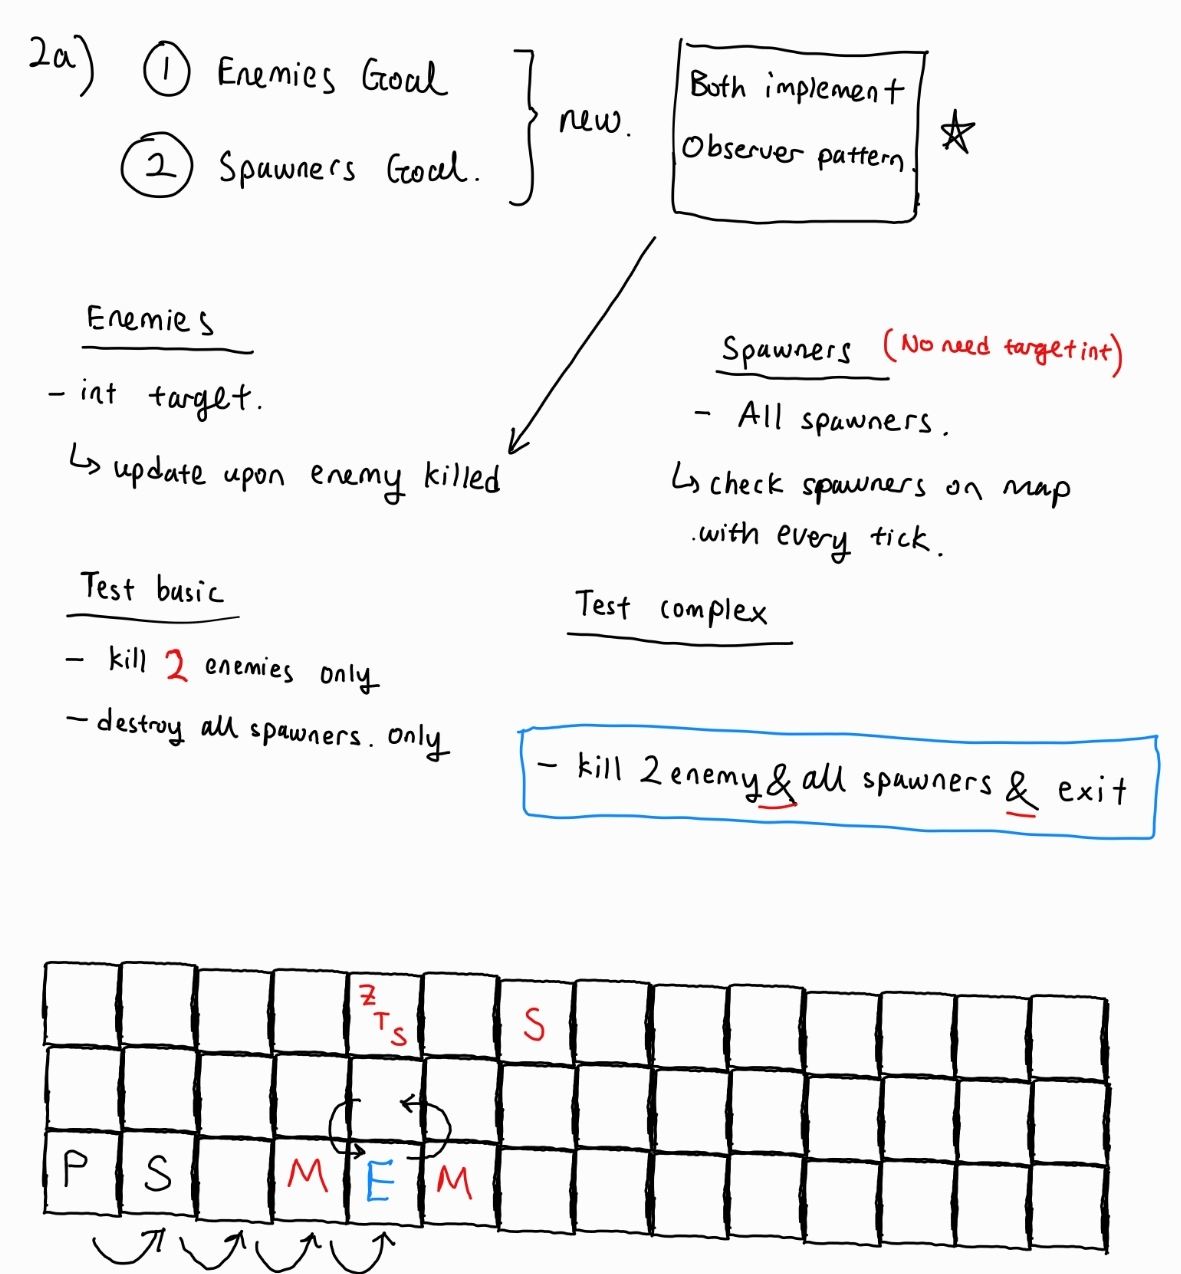 2a) 1 Enemies Goal
2 Spawners Goal.
new.
Both implement
Observer pattern.
Enemies
- int target.
↳ update upon enemy killed
Spawners (No need target int)
- All spawners.
↳ check spawners on map
with every tick.
Test basic
- kill 2 enemies only
- destroy all spawners. only
Test complex
- kill 2 enemy & all spawners & exit
Z
T
S
S
P S M E M